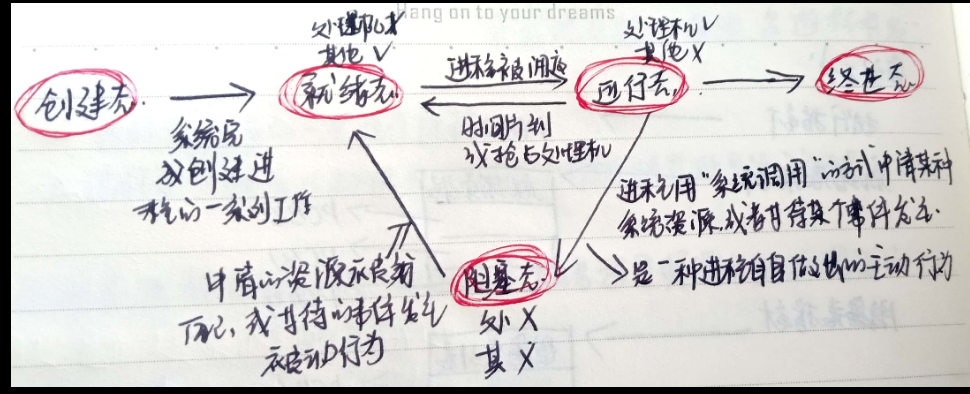 Hang on to your dreams
处理机X
其他 √
处理机√
其他 X
创建态
就绪态
进程被调度
运行态
终止态
时间片到
或抢占处理机
系统完
成创建进
程的一系列工作
进程用“系统调用”的方式申请某种
系统资源,或者等待某个事件发生
是一种进程自身做出的主动行为
申请的资源被分
配,或等待的事件发生
被动行为
阻塞态
处 X
其 X